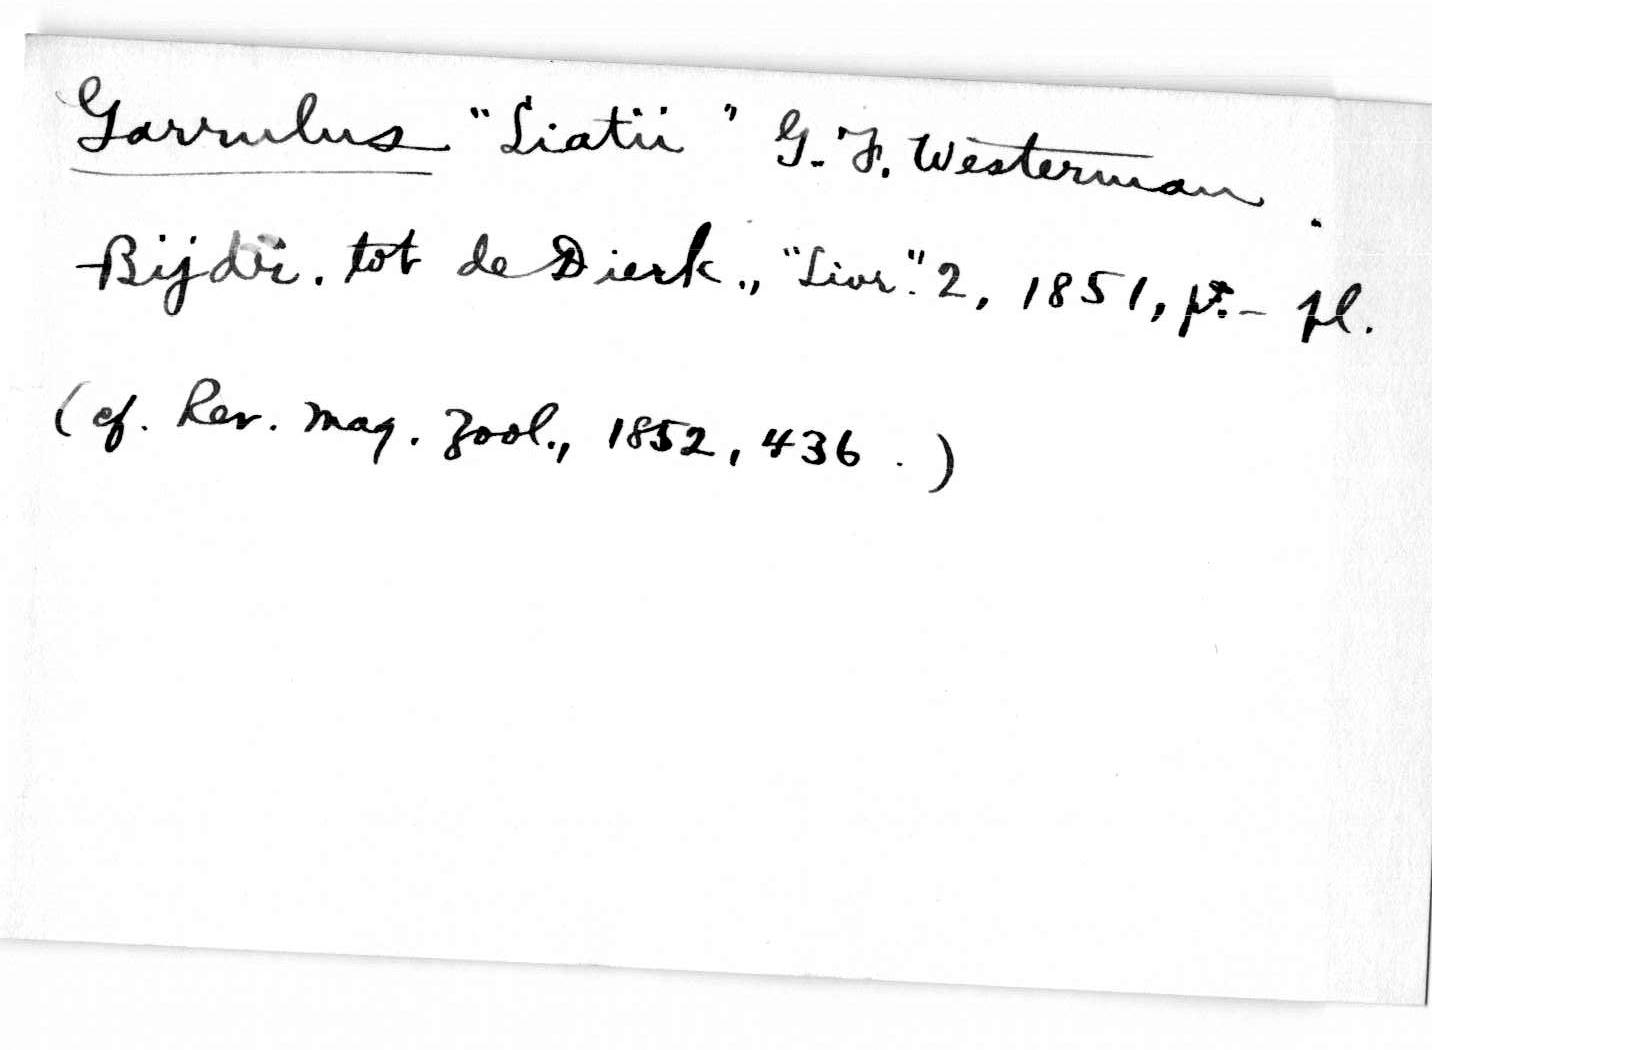 Garrulus "Liatii" G. F. Westerman.
Bijdr. tot de Dierk., "Livr." 2, 1851, pt. - pl.
(cf. Rev. Mag. Zool., 1852, 436.)